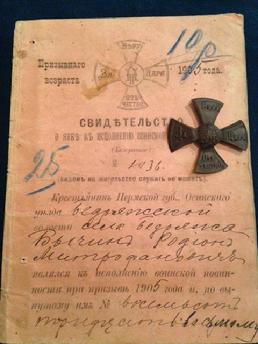 10р
Призывнаго
возраста
1905 года.
ВѢРУ
За
ЦАРЯ
ОТЕ
ЧЕСТВО
СВИДѢТЕЛЬСТВО
О ЯВКѢ КЪ ИСПОЛНЕНІЮ ВОИНСКОЙ
№ 1936.
25
(видомъ на жительство служить не можетъ).
Крестьянинъ Пермской губ., Осинскаго
уѣзда
волости села
Родіонъ
Митрофановичъ
явился къ исполненію воинской повин-
ности при призывѣ 1905 года и, по вы-
нутому имъ № восемьсотъ
тридцать восьмому